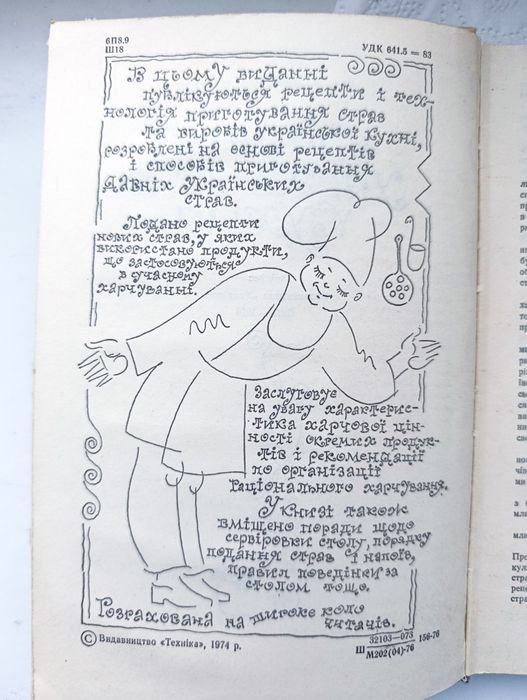 6П8.9
Ш18
УДК 641.5 = 83
В цьому виданні
публікуються рецепти і тех-
нологія приготування страв
та виробів української кухні,
розроблені на основі рецептів
і способів приготування
давніх українських
страв.
Подано рецепти
нових страв, у яких
використано продукти,
що застосовуються
в сучасному
харчуванні.
Заслуговує
на увагу характерис-
тика харчової цін-
ності окремих продук-
тів і рекомендації
по організації
раціонального харчування.
У книзі також
вміщено поради щодо
сервіровки столу, порядку
подання страв і напоїв,
правил поведінки за
столом тощо.
Розрахована на широке коло
читачів.
© Видавництво «Техніка», 1974 р.
Ш 32103—073 156-76
М202(04)-76